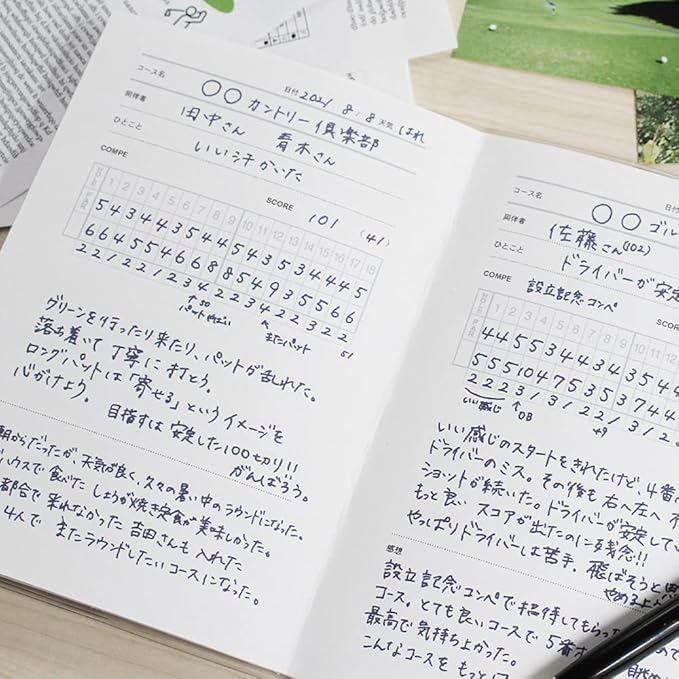 コース名 〇〇 カントリー倶楽部 日付 2021 8.8 天気 はれ
同伴者 田中さん 青木さん
ひとこと いい汗かいた
COMPE SCORE 101 (41)
1 2 3 4 5 6 7 8 9 10 11 12 13 14 15 16 17 18
5 4 3 4 4 3 5 4 4 5 4 3 5 3 4 4 4 5
6 6 4 5 5 4 6 6 8 8 5 4 9 3 5 5 6 6
2 2 1 2 2 1 2 3 4 2 2 3 4 2 2 3 2 2
パットやばい
またパット
51
グリーンを行ったり来たり、パットが乱れた。
落ち着いて丁寧に打とう。
ロングパットは「寄せる」というイメージを
心がけよう。
目指すは安定した100切り!!
がんばろう。
朝からだったが、天気が良く、久々の暑い中のラウンドになった。
ハウスで食べたしょうが焼き定食が美味しかった。
都合で来れなかった吉田さんも入れた
4人でまたラウンドしたいコースになった。
コース名 〇〇 ゴル
日付
同伴者 佐藤さん(102)
ひとこと ドライバーが安定
COMPE 設立記念コンペ SCORE
1 2 3 4 5 6 7 8 9 10 11 12
4 4 5 5 3 4 4 3 4 3 5 4 4
5 5 5 10 4 7 5 3 5 3 7 4 4
いい感じ
OB
いい感じのスタートをきれたけど、4番
ドライバーのミス。その後も右へ左へ
ショットが続いた。ドライバーが安定してい
もっと良いスコアが出たのに残念!!
やっぱりドライバーは苦手。飛ばそうと思
やめよ
感想
設立記念コンペで招待してもらっ
コース。とても良いコースで5番ホ
最高で気持ちよかった。
こんなコースをもっと